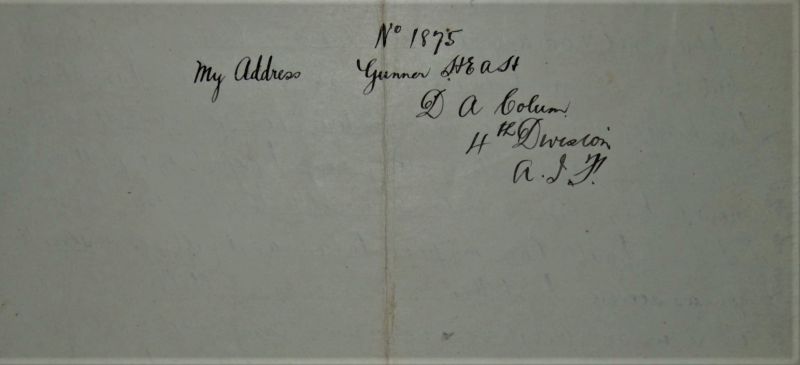 No 1875
My Address Gunner H East
D A Colum
4th Division
A. I. F.